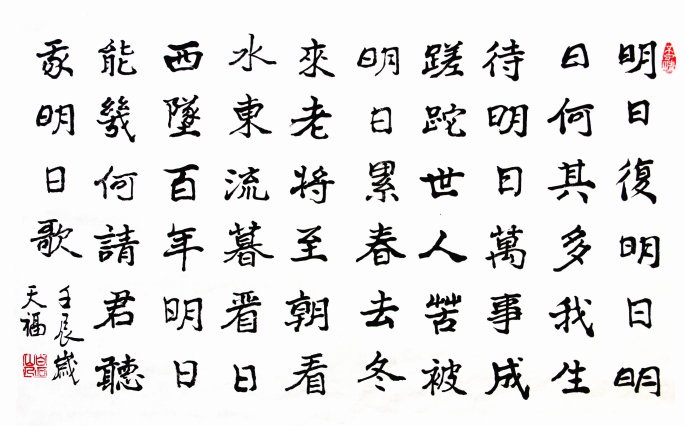 明日復明日明
日何其多我生
待明日萬事成
蹉跎世人苦被
明日累春去冬
來老將至朝看
水東流暮看日
西墜百年明日
能幾何請君聽
我明日歌
壬辰歲
天福